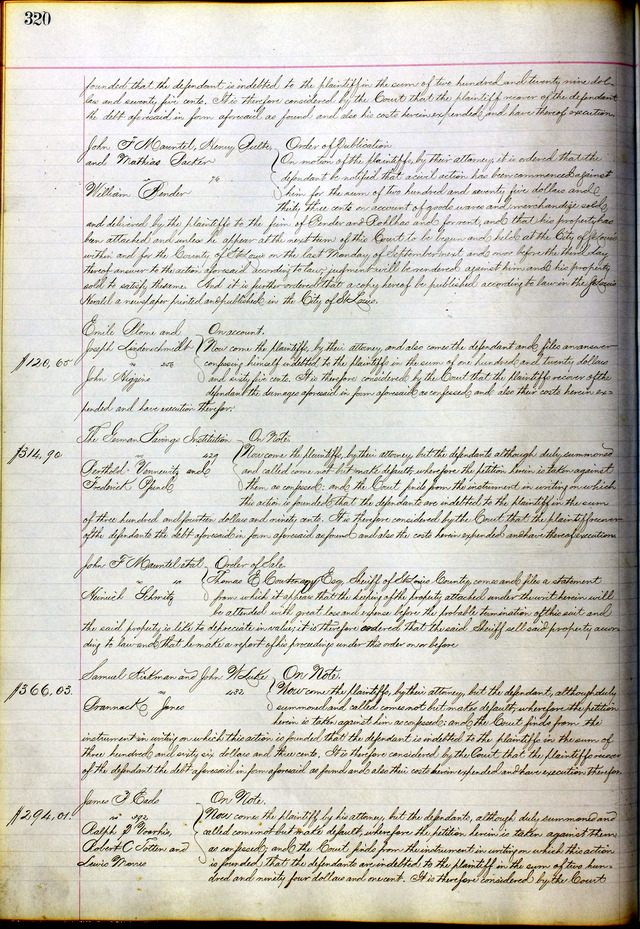 320
founded that the defendant is indebted to the plaintiff in the sum of two hundred and twenty nine dol-
lars and seventy five cents. It is therefore considered by the Court that the plaintiff recover of the defendant
the debt aforesaid in form aforesaid as found and also his costs herein expended and have thereof execution.
John F Mauntel, Henry
and Mathias
vs 76
William Pender
Order of Publication
On motion of the plaintiffs, by their attorney, it is ordered that the
defendant be notified that a civil action has been commenced against
him for the sum of two hundred and seventy five dollars and
thirty three cents on account of goods wares and merchandize sold
and delivered by the plaintiffs to the firm of Pender and Rohlhas and for rent, and that his property has
been attached and unless he appear at the next term of this Court to be begun and held at the City of St Louis
within and for the County of St Louis on the last Monday of September next and on or before the third day
thereof answer to the action aforesaid according to law, judgment will be rendered against him and his property
sold to satisfy the same. And it is further ordered that a copy hereof be published according to law in the St Louis
Herald a newspaper printed and published in the City of St Louis.
Emile and
Joseph Linderschmidt
vs 256
John Higgins
$120,65
On account.
Now come the plaintiffs, by their attorney, and also comes the defendant and files an answer
confessing himself indebted to the plaintiffs in the sum of one hundred and twenty dollars
and sixty five cents. It is therefore considered by the Court that the plaintiffs recover of the
defendant the damages aforesaid in form aforesaid as confessed and also their costs herein ex-
pended and have execution therefor.
The German Savings Institution
vs 429
Berthold and
Frederick
$314,90
On Note.
Now come the plaintiffs, by their attorney but the defendants although duly summoned
and called come not but make default, wherefore the petition herein is taken against
them as confessed; and the Court finds from the instrument in writing on which
this action is founded that the defendants are indebted to the plaintiff in the sum
of three hundred and fourteen dollars and ninety cents. It is therefore considered by the Court that the plaintiff recover
of the defendants the debt aforesaid in form aforesaid as found and also the costs herein expended and have thereof execution
John F Mauntel et al
vs
Heinrich Schmitz
Order of Sale
Thomas E Courtenay Esq Sheriff of St Louis County, comes and files a statement
from which it appears that the keeping of the property attached under the writ herein will
be attended with great loss and expense before the probable termination of this suit and
the said property is like to depreciate in value, it is therefore ordered that the said Sheriff sell said property accor-
ding to law and that he make a report of his proceedings under this order on or before
Samuel Kirkman and John W Luke
vs 432
Brannack Jones
$366.03.
On Note.
Now come the plaintiffs, by their attorney, but the defendant, although duly
summoned and called comes not but makes default, wherefore the petition
herein is taken against him as confessed; and the Court finds from the
instrument in writing on which this action is founded that the defendant is indebted to the plaintiffs in the sum of
three hundred and sixty six dollars and three cents. It is therefore considered by the Court that the plaintiffs recover
of the defendant the debt aforesaid in form aforesaid as found and also their costs herein expended and have execution therefor.
James B Eads
vs 492
Ralph Voorhis,
Robert C Totten and
Lewis Morris
$294,01.
On Note.
Now come the plaintiff by his attorney, but the defendants, although duly summoned and
called come not but make default, wherefore the petition herein is taken against them
as confessed; and the Court finds from the instrument in writing on which this action
is founded, that the defendants are indebted to the plaintiff in the sum of two hun-
dred and ninety four dollars and one cent. It is therefore considered by the Court